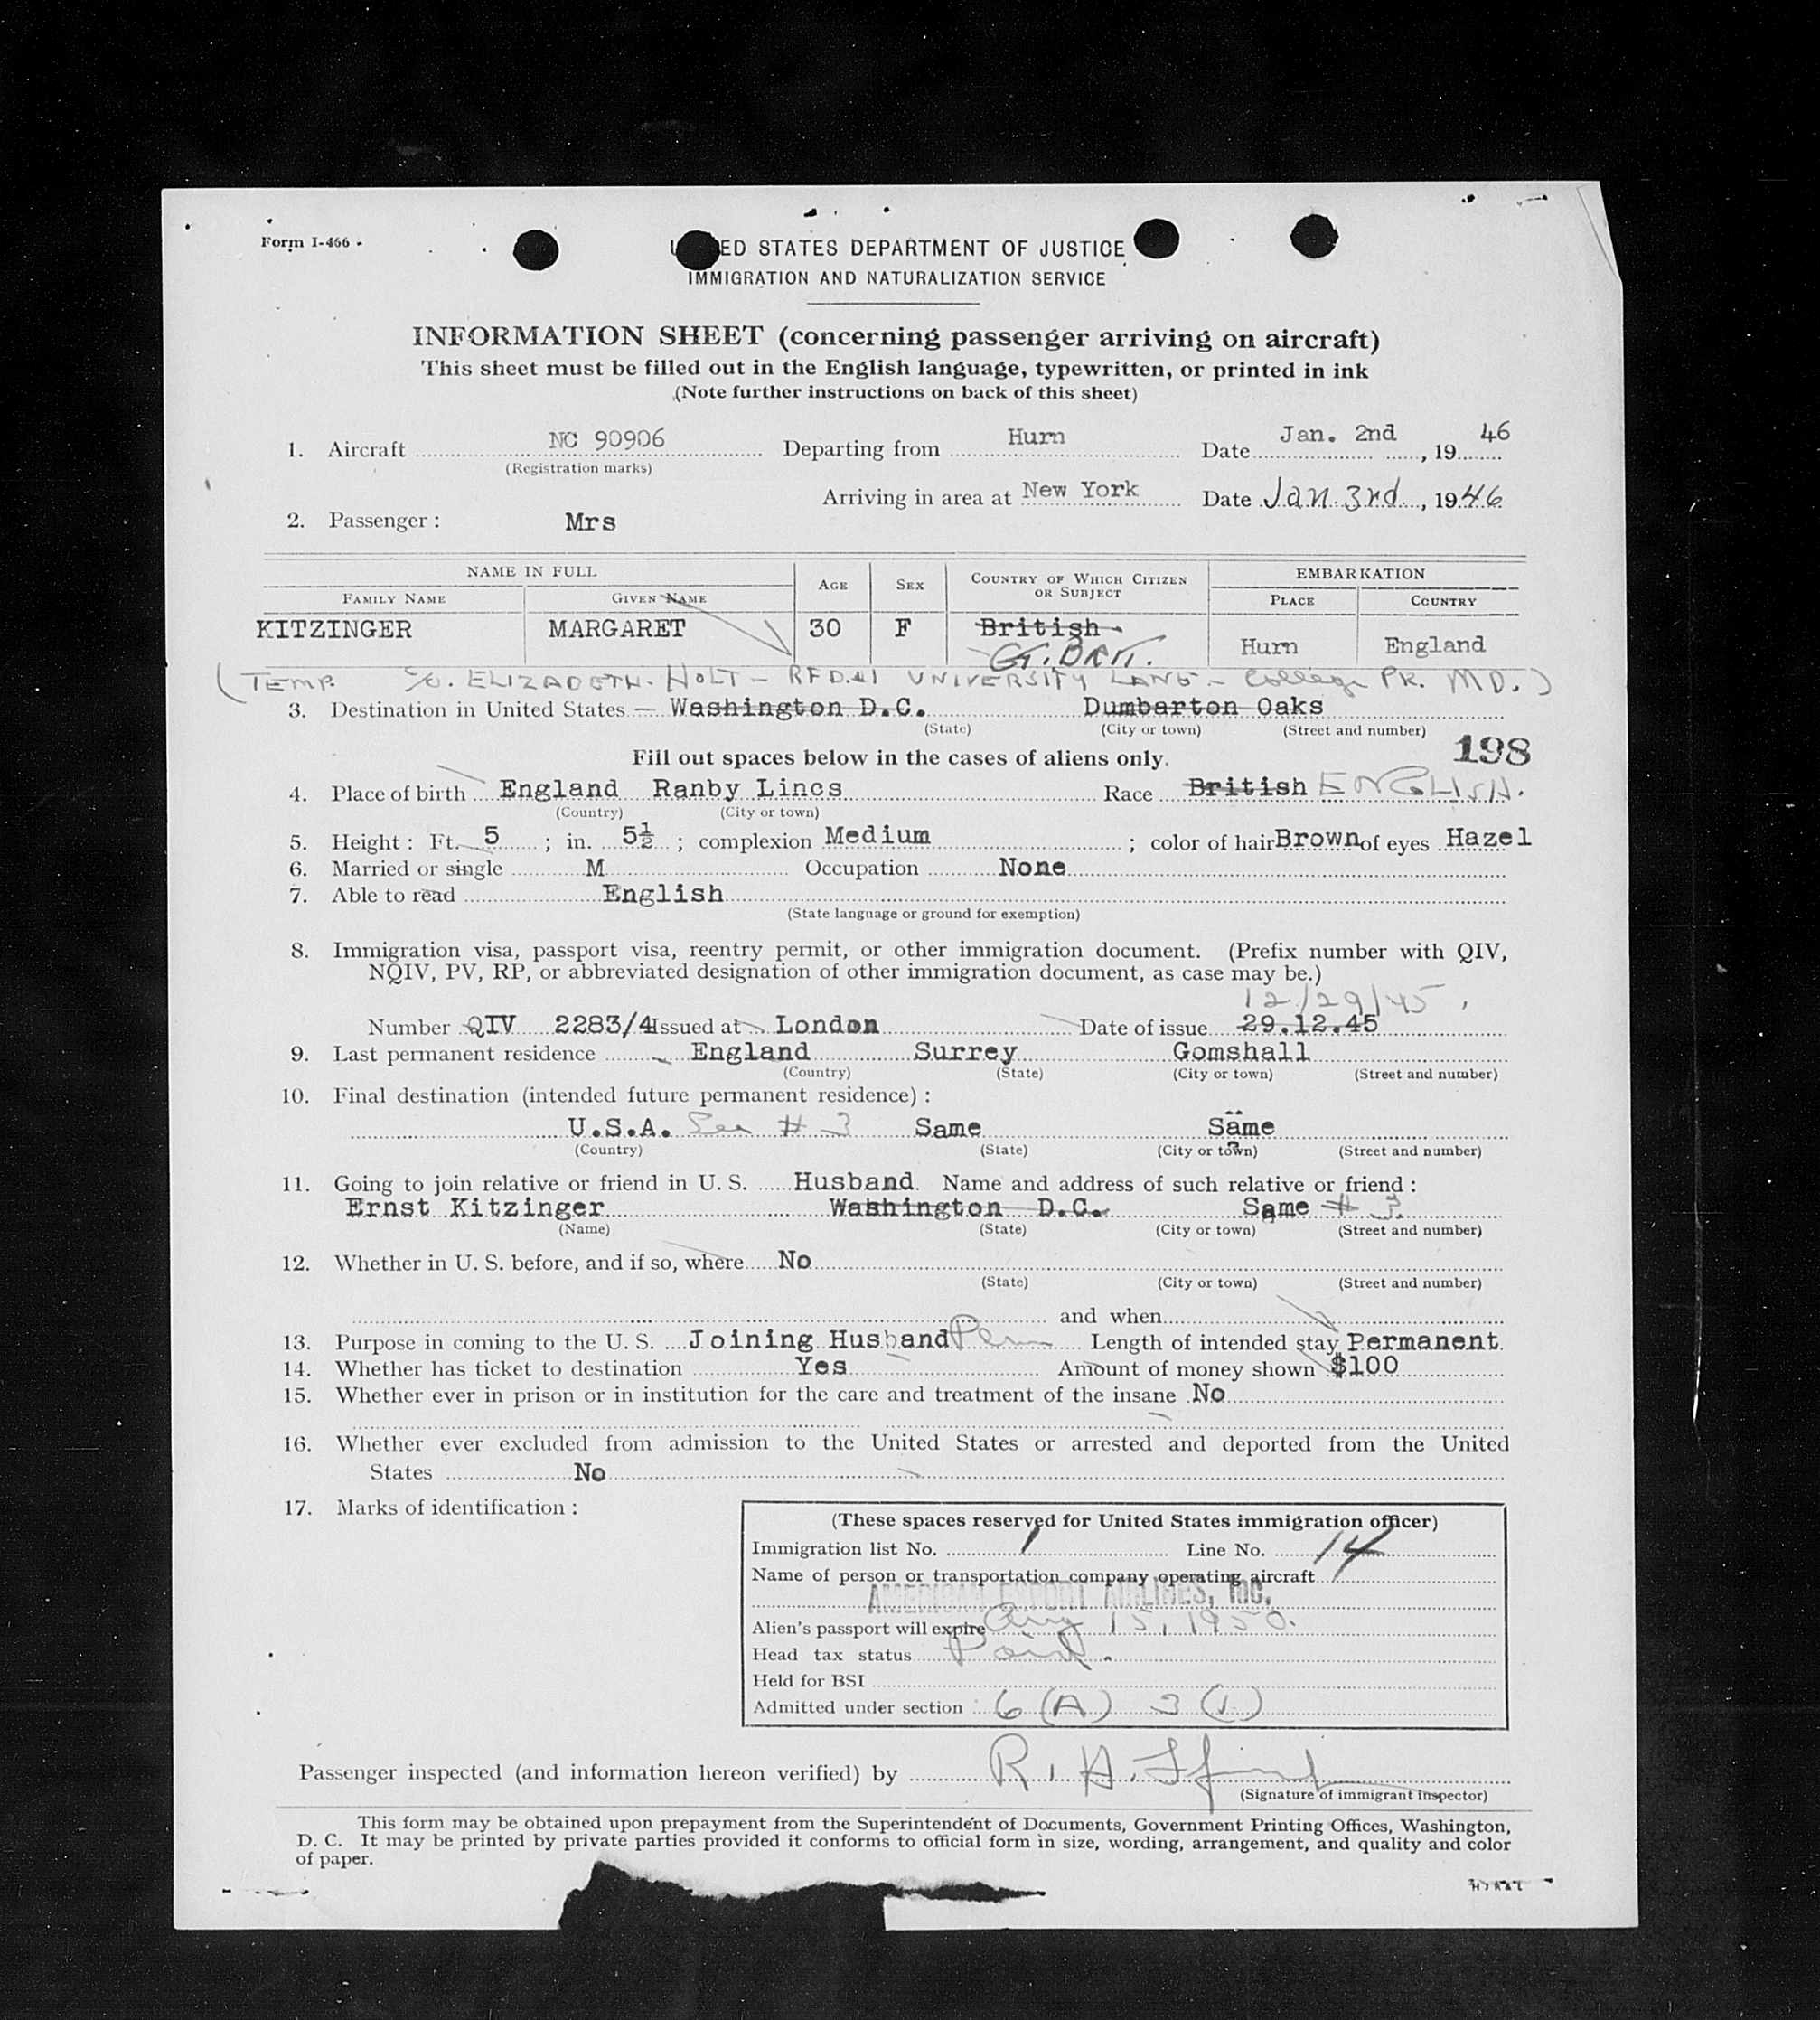 Form I-466
ED STATES DEPARTMENT OF JUSTICE
IMMIGRATION AND NATURALIZATION SERVICE
INFORMATION SHEET (concerning passenger arriving on aircraft)
This sheet must be filled out in the English language, typewritten, or printed in ink
(Note further instructions on back of this sheet)
1. Aircraft NC 90906 Departing from Hurn Date Jan. 2nd, 1946
(Registration marks)
Arriving in area at New York Date Jan. 3rd, 1946
2. Passenger: Mrs
NAME IN FULL AGE SEX COUNTRY OF WHICH CITIZEN OR SUBJECT EMBARKATION
FAMILY NAME GIVEN NAME PLACE COUNTRY
KITZINGER MARGARET 30 F British Hurn England
GT. BRIT.
(TEMP. C/O. ELIZABETH. HOLT - RFD.#1 UNIVERSITY LANE - College PK. MD.)
3. Destination in United States - Washington D.C. Dumbarton Oaks
(State) (City or town) (Street and number)
Fill out spaces below in the cases of aliens only. 198
4. Place of birth England Ranby Lincs Race British ENGLISH.
(Country) (City or town)
5. Height: Ft. 5; in. 5½; complexion Medium; color of hair Brown of eyes Hazel
6. Married or single M Occupation None
7. Able to read English
(State language or ground for exemption)
8. Immigration visa, passport visa, reentry permit, or other immigration document. (Prefix number with QIV,
NQIV, PV, RP, or abbreviated designation of other immigration document, as case may be.)
12/29/45
Number QIV 2283/4 Issued at London Date of issue 29.12.45
9. Last permanent residence England Surrey Gomshall
(Country) (State) (City or town) (Street and number)
10. Final destination (intended future permanent residence):
U.S.A. See # 3 Same Same
(Country) (State) (City or town) (Street and number)
11. Going to join relative or friend in U. S. Husband. Name and address of such relative or friend:
Ernst Kitzinger Washington D.C. Same # 3
(Name) (State) (City or town) (Street and number)
12. Whether in U. S. before, and if so, where No
(State) (City or town) (Street and number)
and when
13. Purpose in coming to the U. S. Joining Husband Perm Length of intended stay Permanent.
14. Whether has ticket to destination Yes Amount of money shown $100
15. Whether ever in prison or in institution for the care and treatment of the insane No
16. Whether ever excluded from admission to the United States or arrested and deported from the United
States No
17. Marks of identification:
(These spaces reserved for United States immigration officer)
Immigration list No. 1 Line No. 14
Name of person or transportation company operating aircraft
AMERICAN EXPORT AIRLINES, INC.
Alien's passport will expire Aug 15, 1950.
Head tax status Paid.
Held for BSI
Admitted under section 6 (A) 3 (1)
Passenger inspected (and information hereon verified) by R. H.
(Signature of immigrant inspector)
This form may be obtained upon prepayment from the Superintendent of Documents, Government Printing Offices, Washington,
D. C. It may be printed by private parties provided it conforms to official form in size, wording, arrangement, and quality and color
of paper.